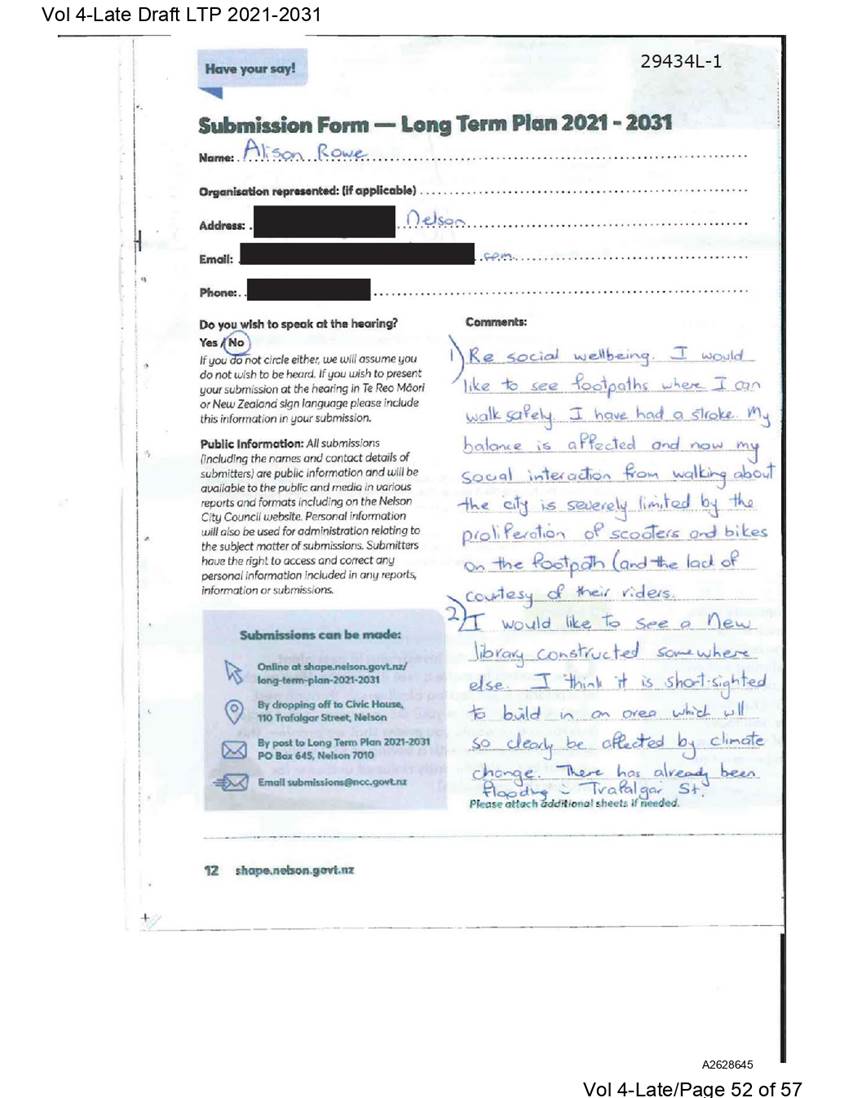 Vol 4-Late Draft LTP 2021-2031
Have your say!
29434L-1
Submission Form — Long Term Plan 2021 - 2031
Name: Alison Rowe
Organisation represented: (if applicable)
Address: Nelson
Email: .com
Phone:
Do you wish to speak at the hearing?
Yes / No
If you do not circle either, we will assume you
do not wish to be heard. If you wish to present
your submission at the hearing in Te Reo Māori
or New Zealand sign language please include
this information in your submission.
Public Information: All submissions
(including the names and contact details of
submitters) are public information and will be
available to the public and media in various
reports and formats including on the Nelson
City Council website. Personal information
will also be used for administration relating to
the subject matter of submissions. Submitters
have the right to access and correct any
personal information included in any reports,
information or submissions.
Submissions can be made:
Online at shape.nelson.govt.nz/
long-term-plan-2021-2031
By dropping off to Civic House,
110 Trafalgar Street, Nelson
By post to Long Term Plan 2021-2031
PO Box 645, Nelson 7010
Email submissions@ncc.govt.nz
Comments:
1) Re social wellbeing. I would
like to see footpaths where I can
walk safely. I have had a stroke. My
balance is affected and now my
social interaction from walking about
the city is severely limited by the
proliferation of scooters and bikes
on the footpath (and the lack of
courtesy of their riders.
2) I would like to see a New
library constructed somewhere
else. I think it is short-sighted
to build in an area which will
so clearly be affected by climate
change. There has already been
flooding in Trafalgar St.
Please attach additional sheets if needed.
12 shape.nelson.govt.nz
A2628645
Vol 4-Late/Page 52 of 57